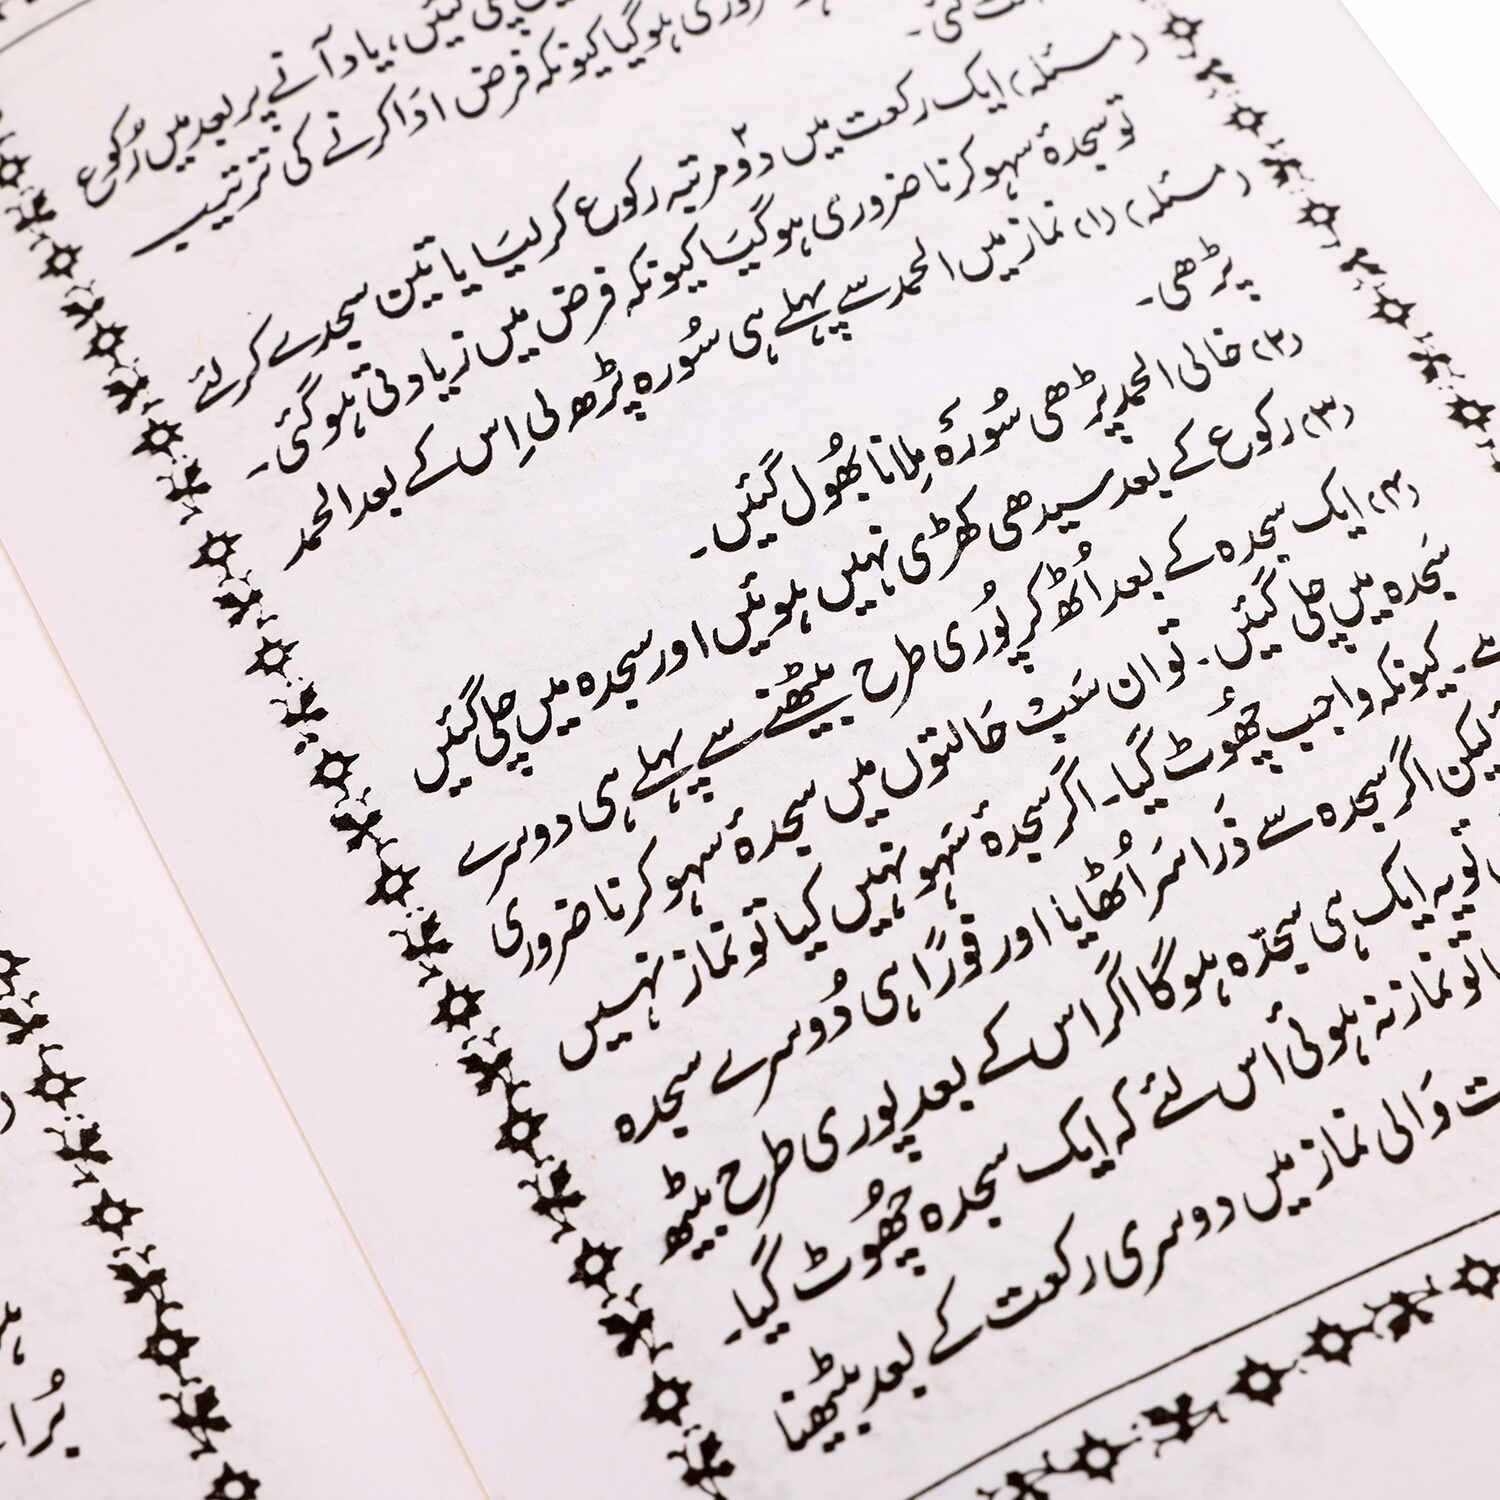 گئیں، یاد آنے پر بعد میں رکوع
ضروری ہو گیا کیونکہ فرض ادا کرنے کی ترتیب
گئی۔
(مسئلہ) ایک رکعت میں دو ۲ مرتبہ رکوع کر لیا یا تین سجدے کر لئے
تو سجدۂ سہو کرنا ضروری ہو گیا کیونکہ فرض میں زیادتی ہو گئی۔
(مسئلہ) (۱) نماز میں الحمد سے پہلے ہی سُورہ پڑھ لی اِس کے بعد الحمد
پڑھی۔
(۲) خالی الحمد پڑھی سُورۂ مِلانا بھُول گئیں۔
(۳) رکوع کے بعد سیدھی کھڑی نہیں ہوئیں اور سجدہ میں چلی گئیں
(۴) ایک سجدہ کے بعد اُٹھ کر پُوری طرح بیٹھنے سے پہلے ہی دوسرے
سَجدہ میں چلی گئیں۔ تو ان سَبْ حَالتوں میں سجدۂ سہو کرنا ضروری
ہے۔ کیونکہ واجب چھُوٹ گیا۔ اگر سجدۂ سَہو نہیں کیا تو نماز نہیں
لیکن اگر سجدہ سے ذَرا سَر اُٹھایا اور فورًا ہی دُوسرے سجدہ
تو یہ ایک ہی سجدَہ ہوگا اگر اس کے بعد پوری طرح بیٹھ
تو نماز نہ ہوئی اس لئے کہ ایک سجدہ چھُوٹ گیا۔
وَالی نماز میں دوسری رکعت کے بعد بیٹھنا